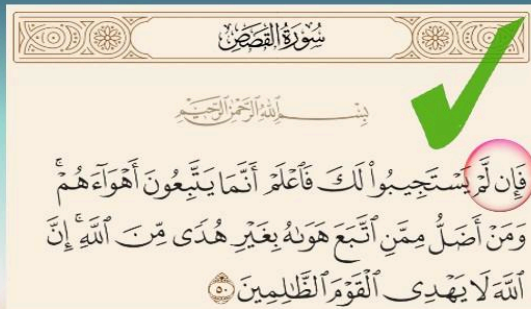 سُورَةُ القَصَصِ
بِسْمِ ٱللَّهِ ٱلرَّحْمَٰنِ ٱلرَّحِيمِ
فَإِن لَّمْ يَسْتَجِيبُوا۟ لَكَ فَٱعْلَمْ أَنَّمَا يَتَّبِعُونَ أَهْوَآءَهُمْ ۚ
وَمَنْ أَضَلُّ مِمَّنِ ٱتَّبَعَ هَوَىٰهُ بِغَيْرِ هُدًى مِّنَ ٱللَّهِ ۚ إِنَّ
ٱللَّهَ لَا يَهْدِى ٱلْقَوْمَ ٱلظَّٰلِمِينَ ٥٠